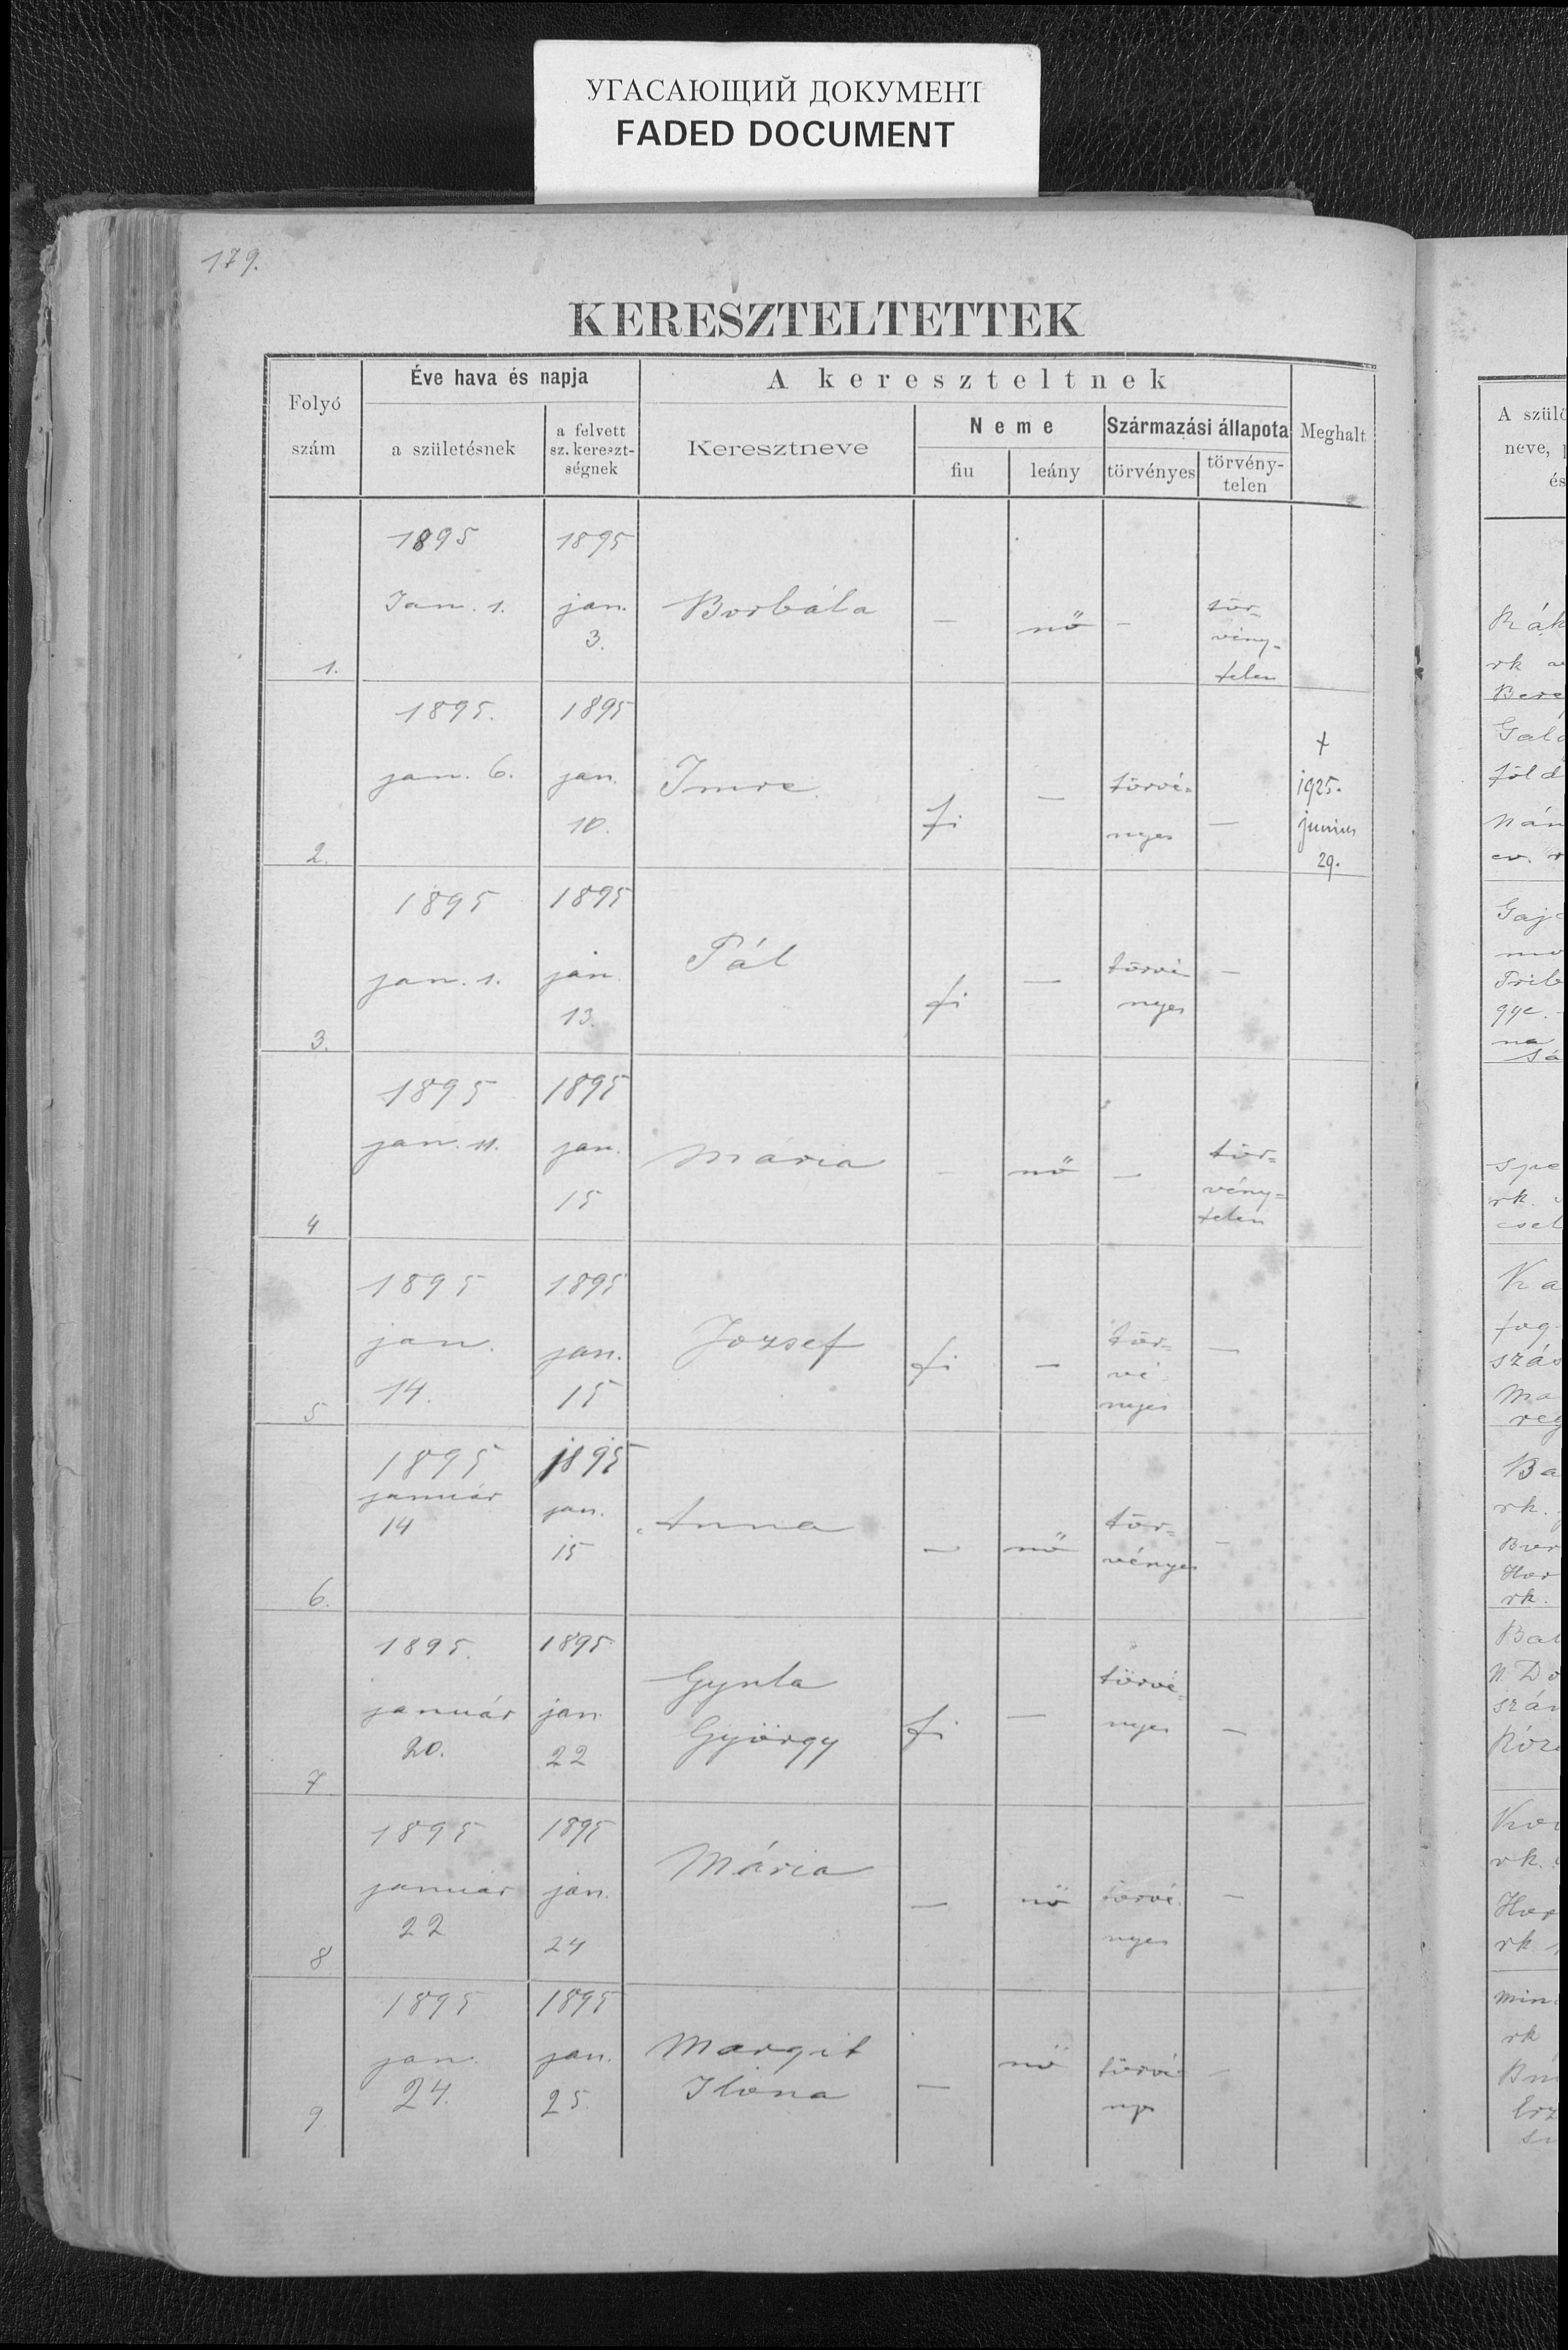 УГАСАЮЩИЙ ДОКУМЕНТ
FADED DOCUMENT
179.
KERESZTELTETTEK
Folyó
szám
Éve hava és napja
a születésnek
a felvett
sz. kereszt-
ségnek
A kereszteltnek
Keresztneve
Neme
fiu
leány
Származási állapota
törvényes
törvény-
telen
Meghalt
1.
1895
Jan. 1.
1895
jan.
3.
Borbála
—
nő
—
tör-
vény-
telen
2.
1895.
jan. 6.
1895
jan.
10.
Imre
fi
—
törvé-
nyes
—
†
1925.
junius
29.
3.
1895
jan. 1.
1895
jan.
13.
Pál
fi
—
törvé
nyes
—
4
1895
jan. 11.
1895
jan.
15
Mária
—
nő
—
tör-
vény-
telen
5
1895
jan.
14.
1895
jan.
15
Jozsef
fi
—
tör-
vé
nyes
—
6.
1895
január
14
1895
jan.
15
Anna
—
nő
tör-
vényes
—
7
1895.
január
20.
1895
jan.
22
Gyula
György
fi
—
törvé-
nyes
—
8
1895
január
22
1895
jan.
24
Mária
—
nő
törvé
nyes
—
9.
1895
jan.
24.
1895
jan.
25.
Margit
Ilona
—
nő
törvé
—
A szülő
neve,
és
Rák
rk
Bere
föld
Nán
ev. r
rk.
Ka
fog
szás
Ma
Ba
rk.
Hor
rk.
N. Do
rk.
rk
rk
Erz